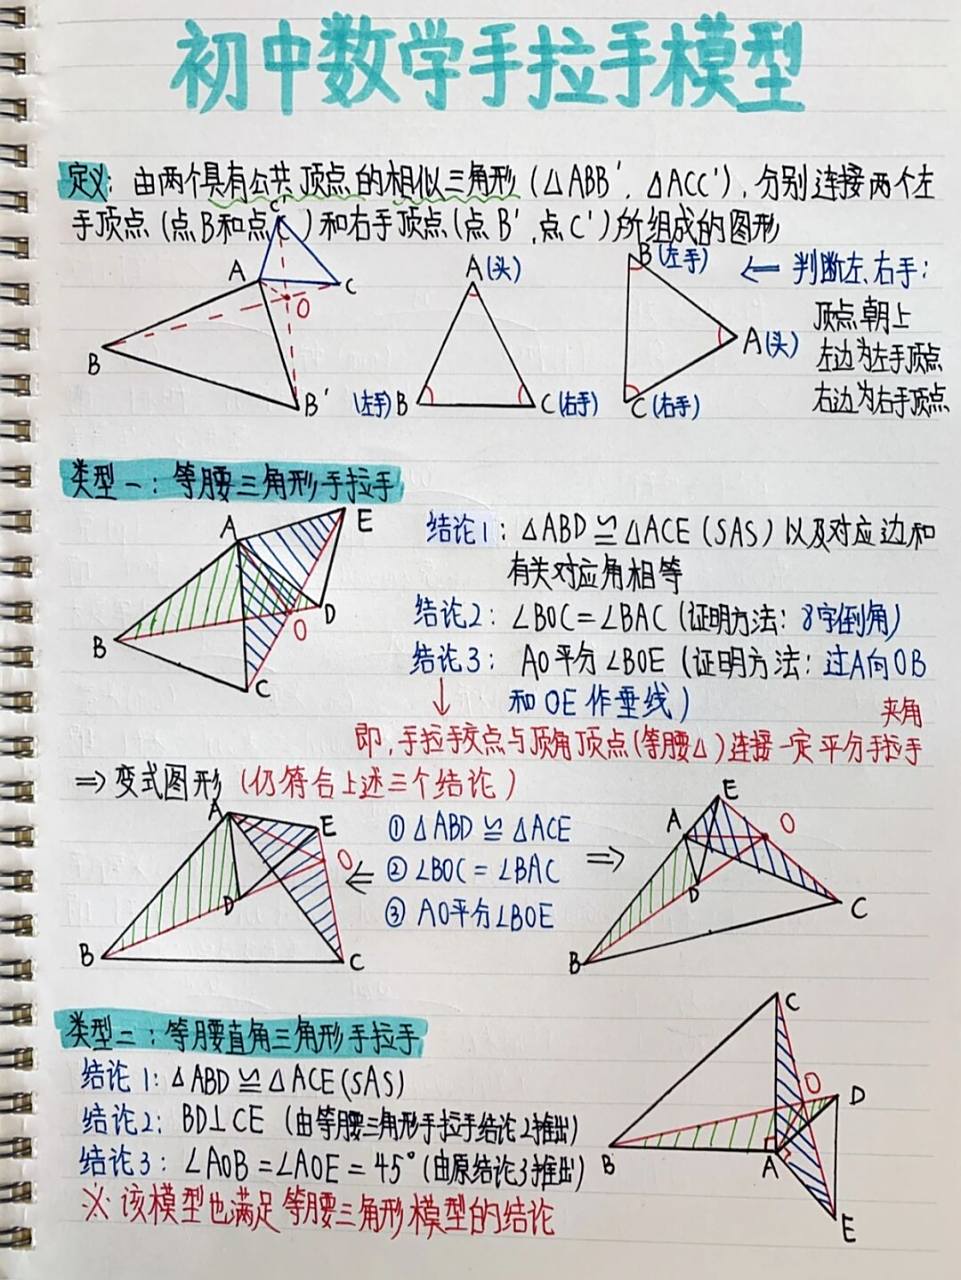 初中数学手拉手模型
定义: 由两个具有公共顶点的相似三角形 (△ABB', △ACC'), 分别连接两个左
手顶点 (点B和点C') 和右手顶点 (点B', 点C') 所组成的图形
A
C
O
B
B'
A(头)
(左手)B
C(右手)
B(左手)
A(头)
C(右手)
← 判断左、右手:
顶点朝上
左边为左手顶点
右边为右手顶点
类型一: 等腰三角形手拉手
A
E
B
O
D
C
结论1: △ABD≌△ACE (SAS) 以及对应边和
有关对应角相等
结论2: ∠BOC=∠BAC (证明方法: 8字倒角)
结论3: AO平分∠BOE (证明方法: 过A向OB
和OE作垂线)
↓
夹角
即, 手拉手交点与顶角顶点(等腰△)连接一定平分手拉手
⇒ 变式图形 (仍符合上述三个结论)
A
E
O
D
B
C
① △ABD≌△ACE
⇐ ② ∠BOC=∠BAC ⇒
③ AO平分∠BOE
E
A
O
D
C
B
类型二: 等腰直角三角形手拉手
结论1: △ABD≌△ACE(SAS)
结论2: BD⊥CE (由等腰三角形手拉手结论2推出)
结论3: ∠AOB=∠AOE=45° (由原结论3推出)
※ 该模型也满足等腰三角形模型的结论
C
O
D
B
A
E